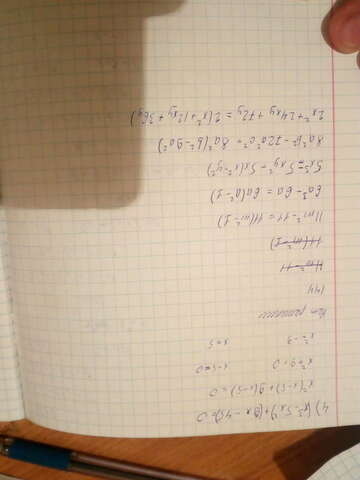 4) (x³-5x²)+(9x-45)=0
x²(x-5)+9(x-5)=0
x²+9=0 x-5=0
x²=-9 x=5
Нет решения
144
11m²-11
11(m²-1)
11m²-11=11(m²-1)
6a³-6a=6a(a²-1)
5x³-5xy²=5x(x²-y²)
8a²b²-72a²c²=8a²(b²-9c²)
2x²+24xy+72y²=2(x²+12xy+36y²)